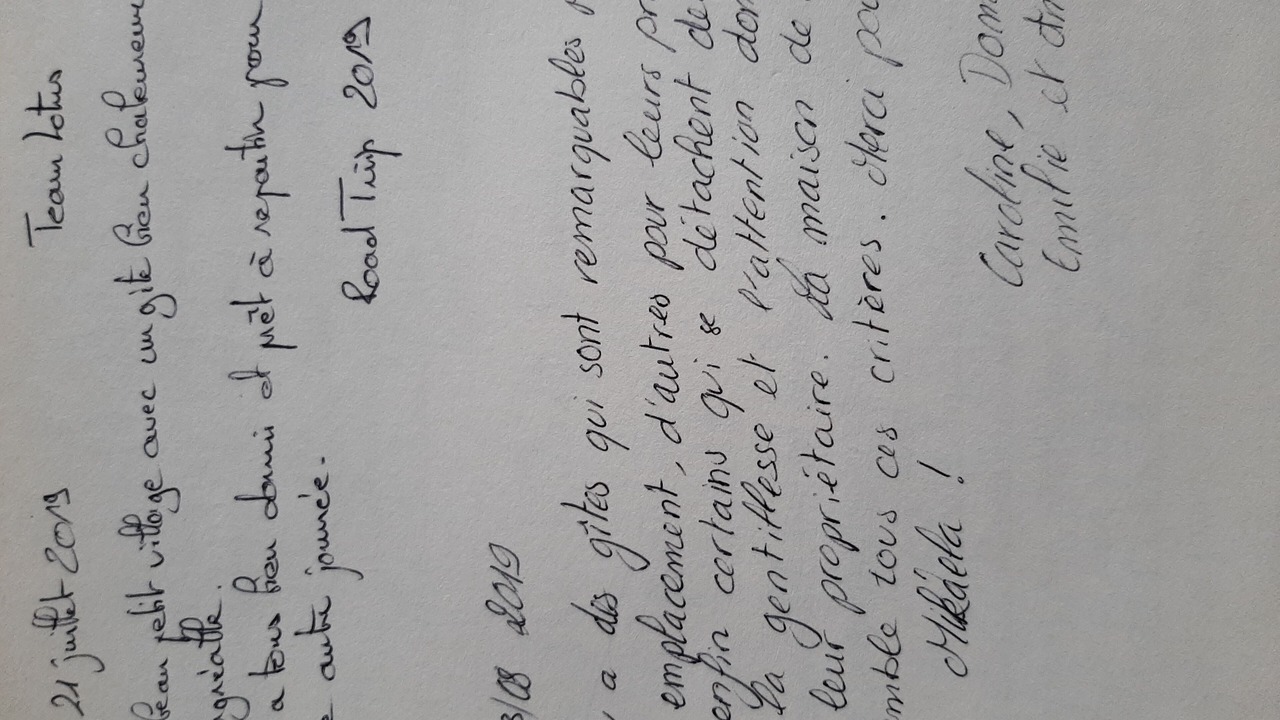 21 juillet 2019 Team Lotus
beau petit village avec un gîte bien chaleureu
agréable.
a tous bien dormi et prêt à repartir pour
autre journée.
Road Trip 2019
/08 2019
a des gîtes qui sont remarquables
emplacement, d'autres pour leurs pr
enfin certains qui se détachent de
la gentillesse et l'attention don
leur propriétaire. La maison de
emble tous ces critères. Merci pou
Mikaela !
Caroline, Dom
Emilie et